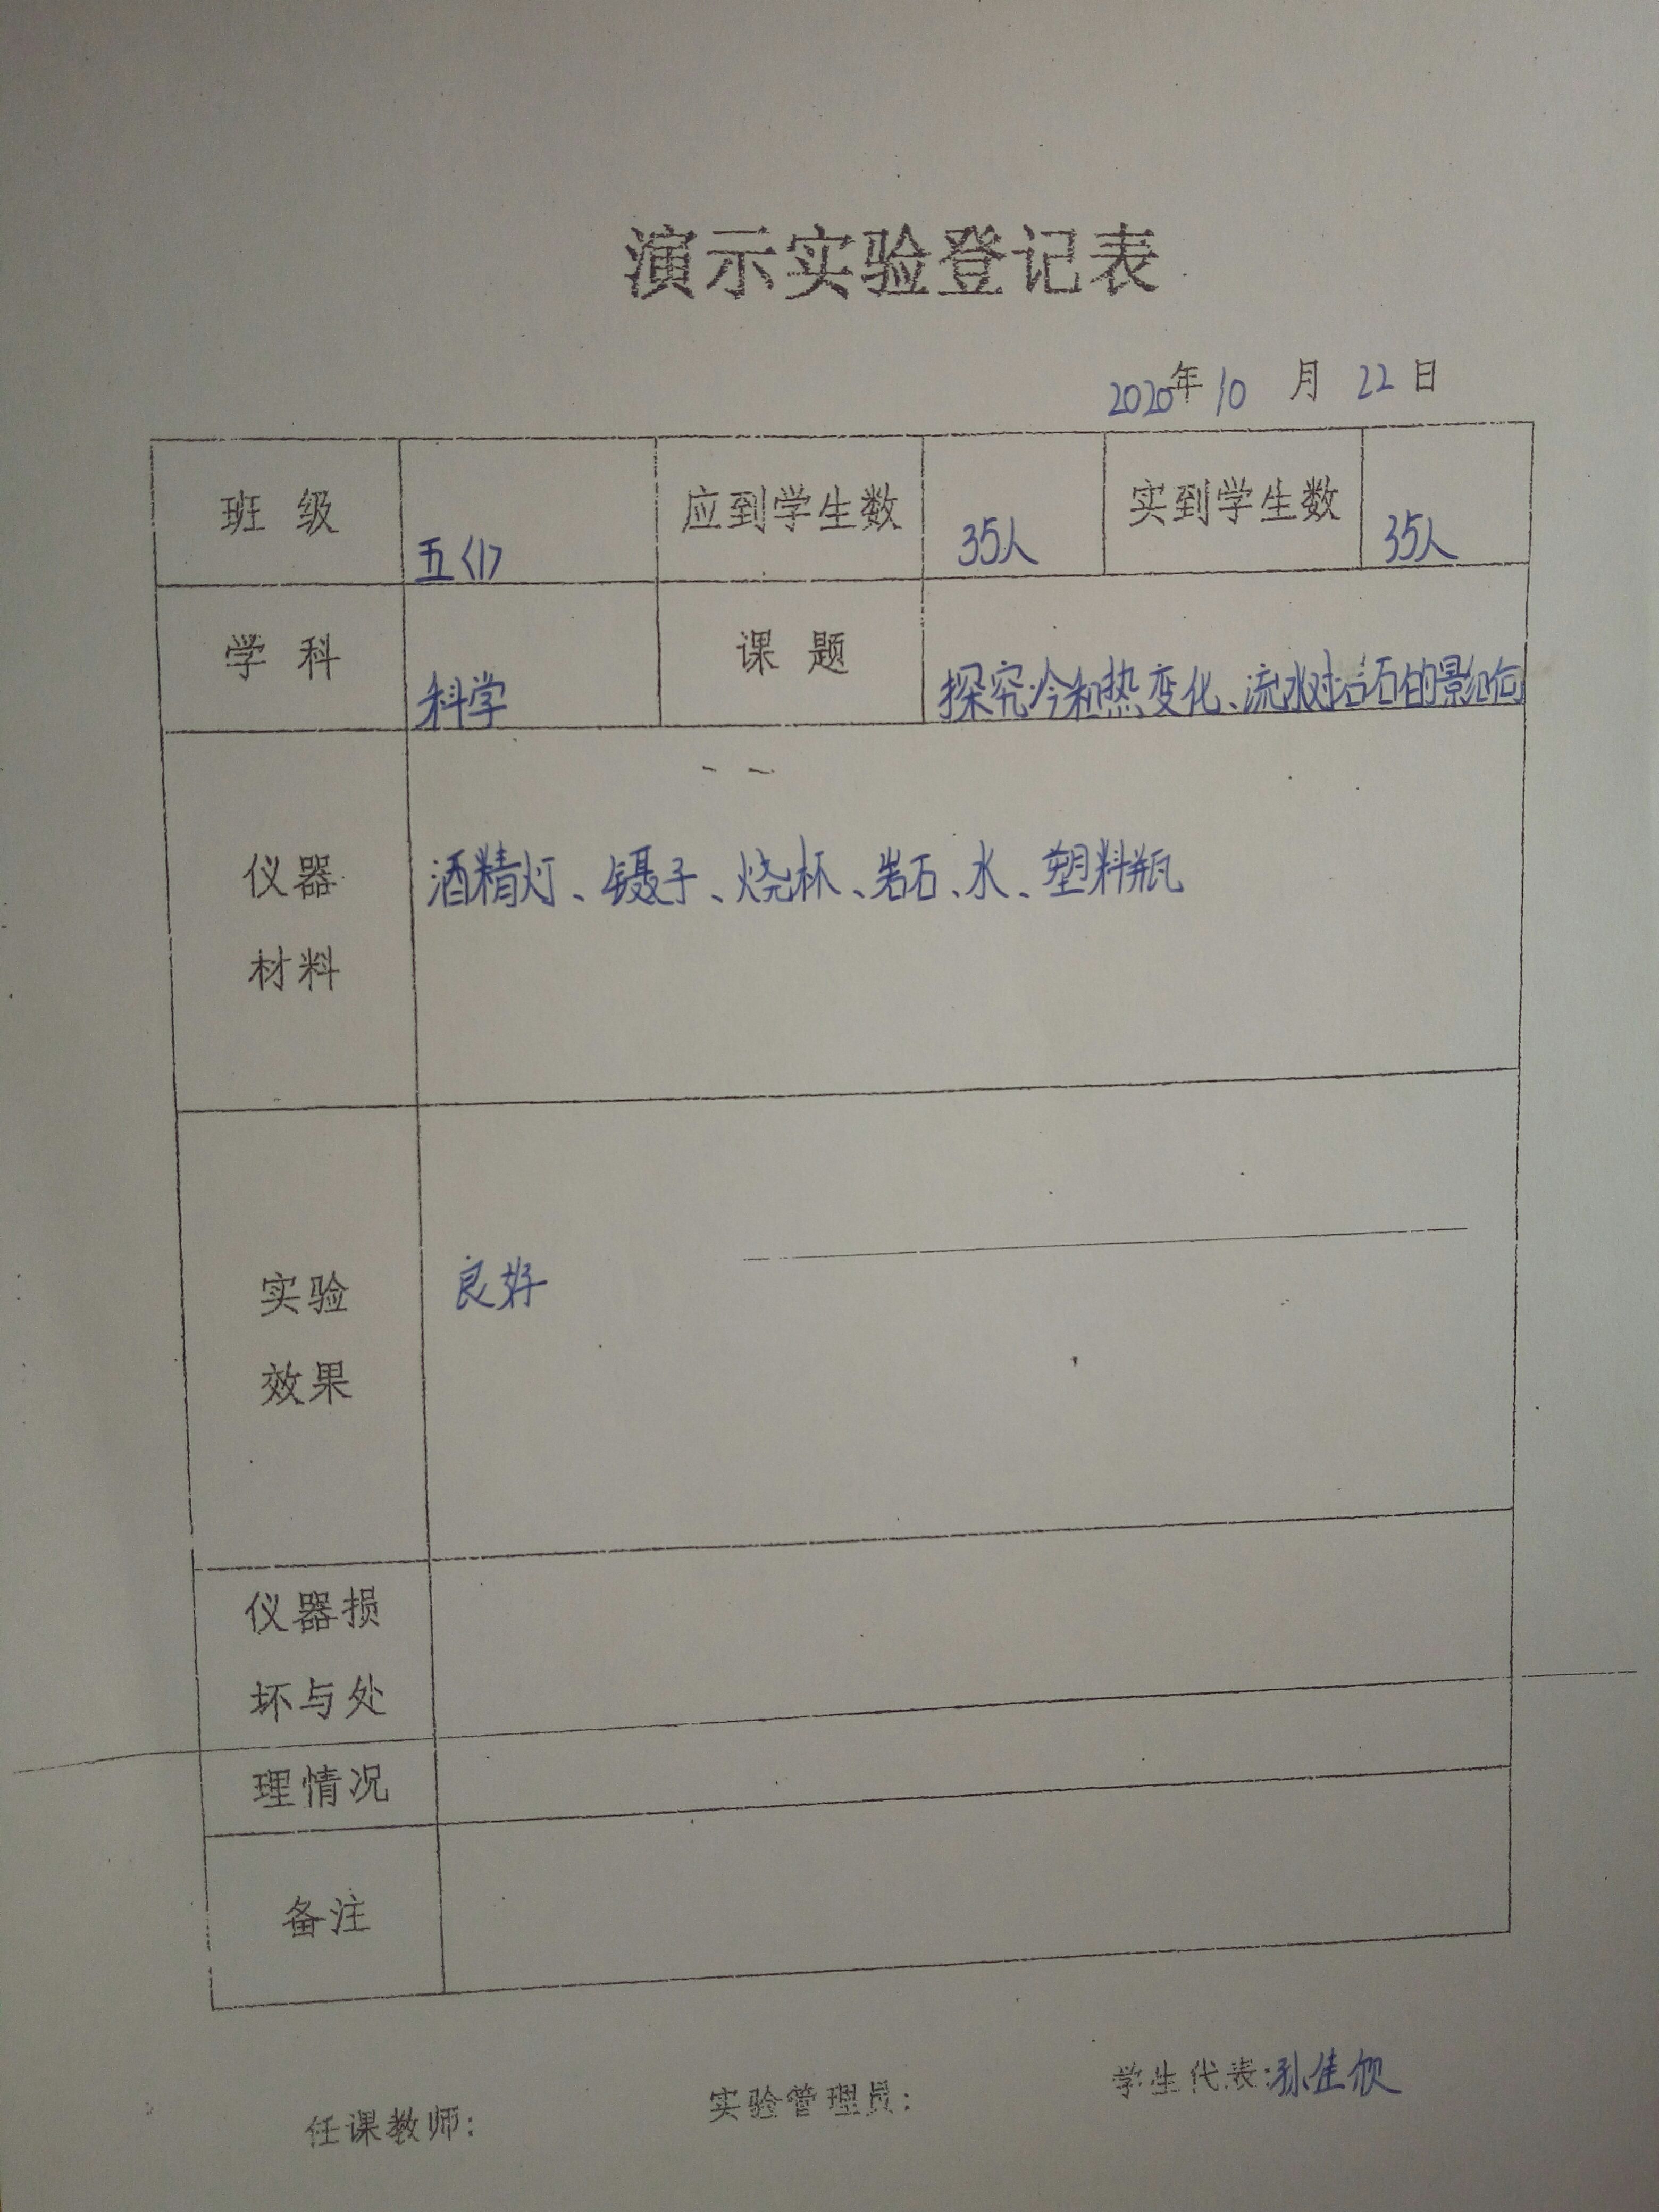 演示实验登记表
2020年10月22日
班级 五〈1〉 应到学生数 35人 实到学生数 35人
学科 科学 课题 探究冷和热变化、流水对岩石的影响
仪器
材料
酒精灯、镊子、烧杯、岩石、水、塑料瓶
实验
效果
良好
仪器损
坏与处
理情况
备注
任课教师:
实验管理员:
学生代表:孙佳欣